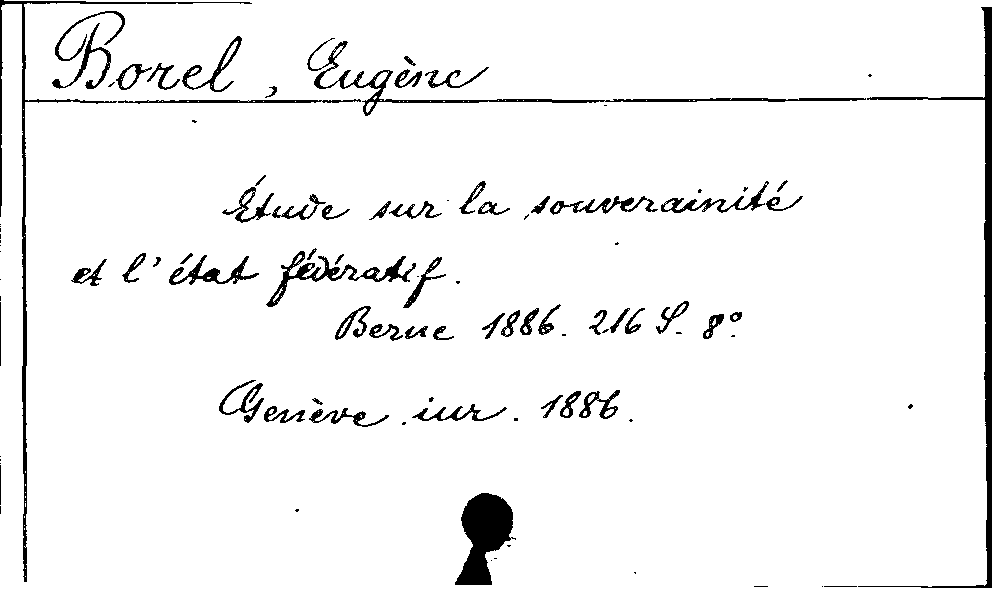 Borel, Eugène
Étude sur la souverainité
et l'état fédératif.
Berne 1886. 216 S. 8°.
Genève iur. 1886.